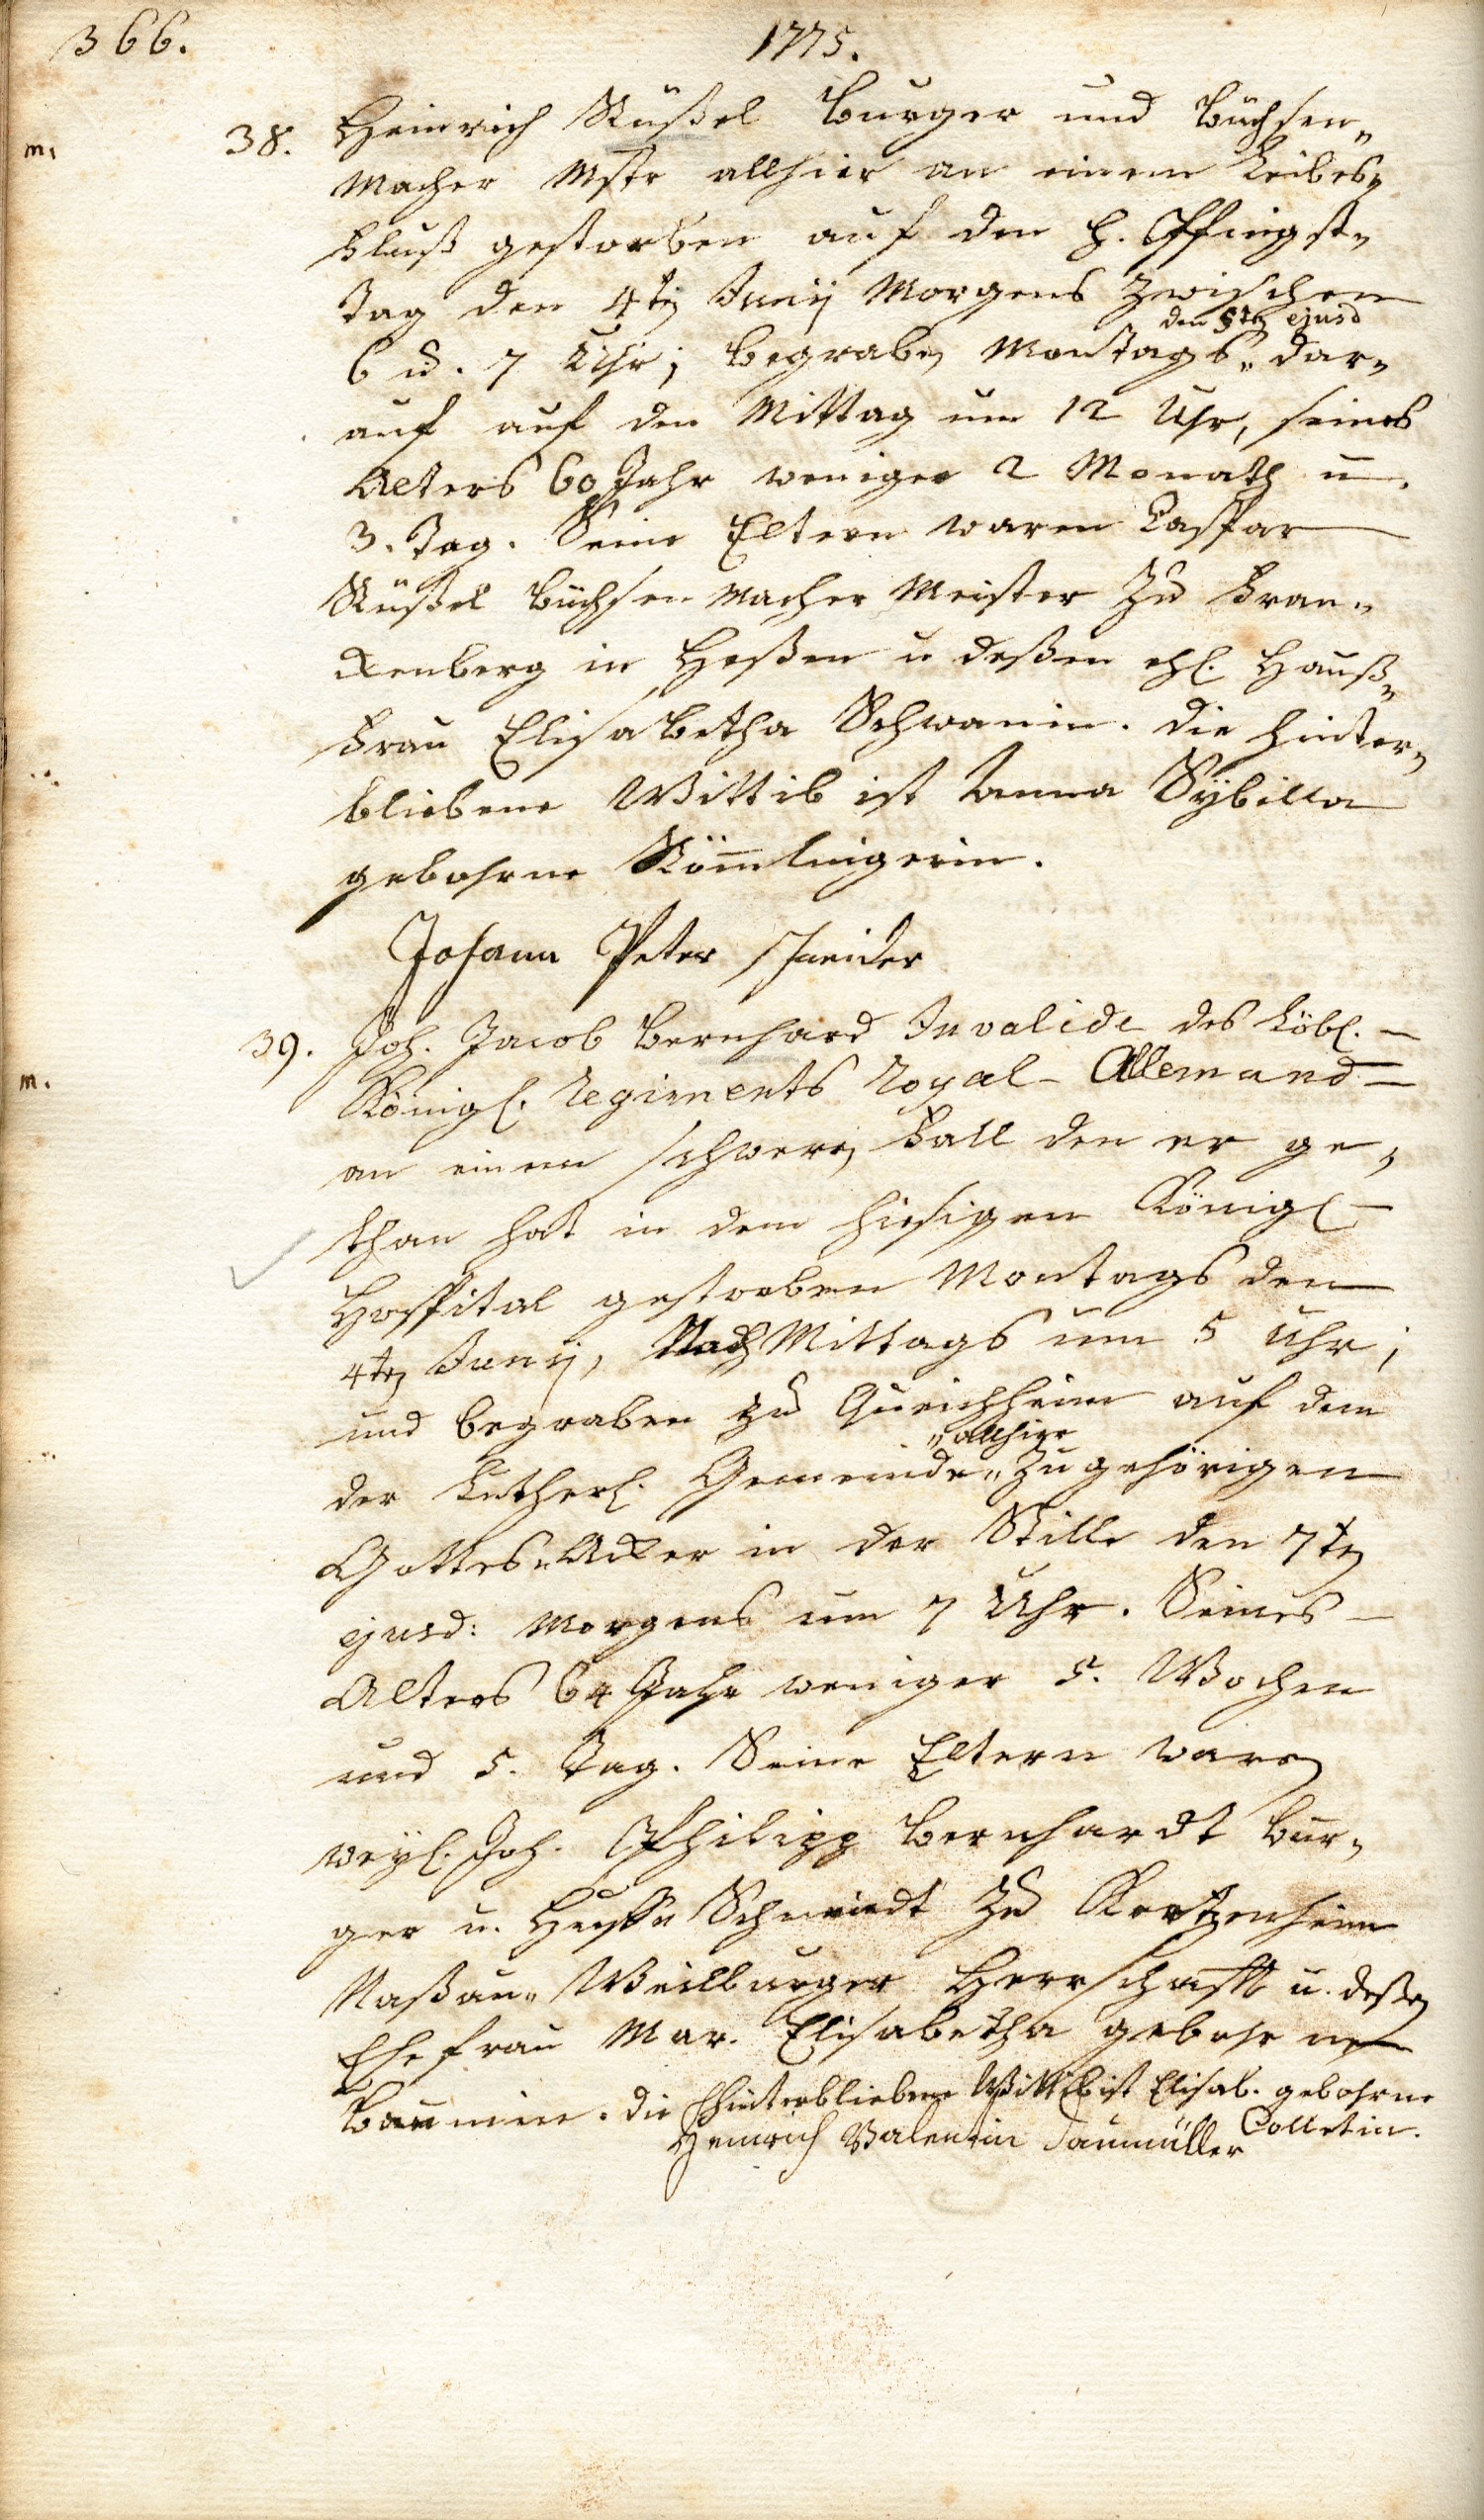 366.
1775.
m.
38. Heinrich Rüßel Burger und Büchsen„
Macher Mstr allhier an einem Leibes„
Fluß gestorben auf den H. Pfingst„
Tag den 4ten Junij Morgens zwischen
den 5ten ejusd
6 u. 7 Uhr; begraben Montags„ dar„
auf auf den Mittag um 12 Uhr, seines
Alters 60 Jahr weniger 2 Monath u.
3. Tag. Seine Eltern waren Caspar
Rüßel Büchsen Macher Meister zu Fran„
kenberg in Heßen u deßen ehl. Hauß„
Frau Elisabetha Schwanin. die hinter„
bliebene Wittib ist Anna Sÿbilla
gebohrne Römlingerin.
Johann Peter Schneider
m.
39. Joh. Jacob Bernhard Invalide des Löbl.
Königl. Regiments Royal-Allemand
an einem schweren Fall den er ge„
than hat in dem hiesigen Königl
Hospital gestorben Montags den
4ten Junij, NachMittags um 5 Uhr;
und begraben zu Queichheim auf dem
„allhier
der Lutherl. Gemeinde„ zugehörigen
Gottes„Acker in der Stille den 7ten
ejusd: Morgens um 7 Uhr. Seines
Alters 64 Jahr weniger 5. Wochen
und 5. Tag. Seine Eltern waren
weyl. Joh. Philipp Bernhardt Bur„
ger u. Huff„Schmiedt zu Kertzenheim
Naßau„Weilburger Herrschafft u. deßen
Ehefrau Mar. Elisabetha gebohrne
Baumin. die Hinterbliebene Wittib ist Elisab. gebohrne
Colletin.
Heinrich Valentin Daumüller